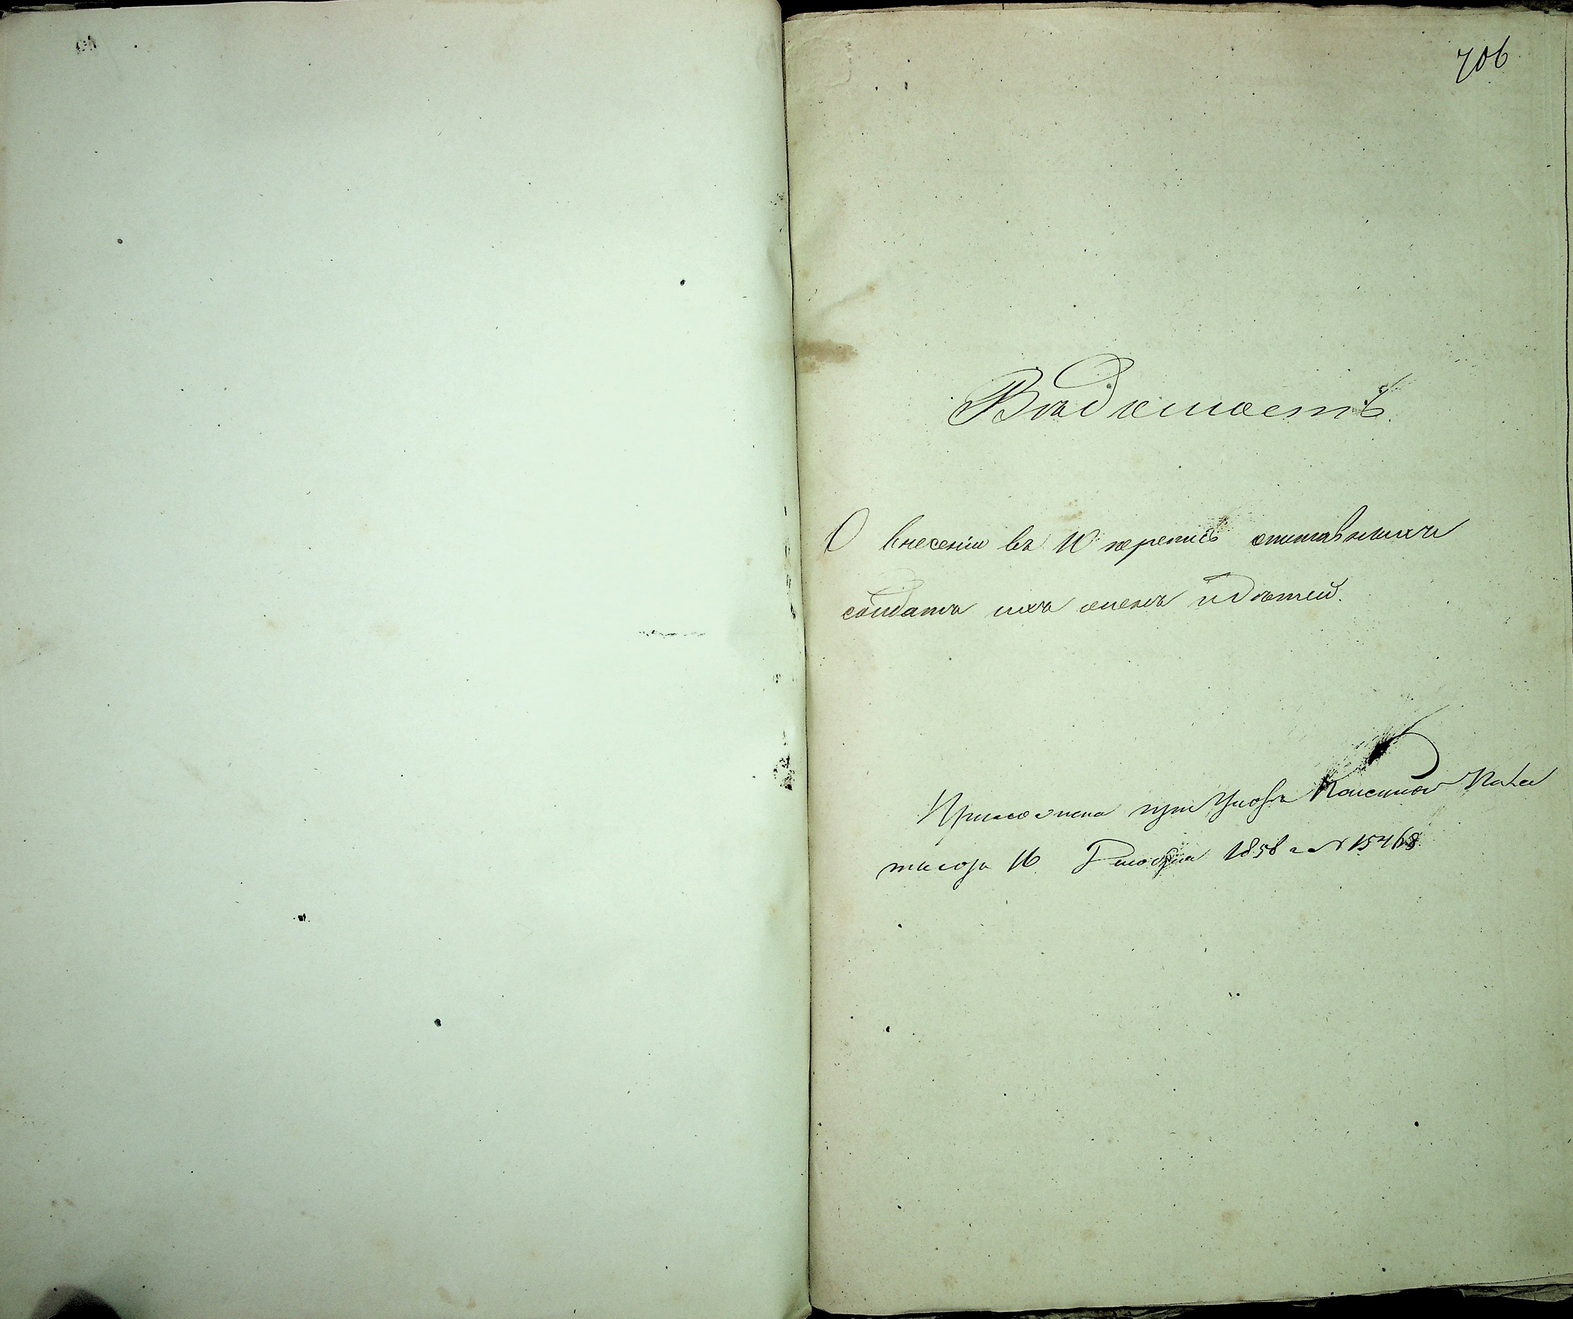 706
Вѣдомость
О внесеніи въ 10 перепись отставныхъ
солдатъ ихъ женъ и дѣтей.
Приложена при Указѣ Казенной Пала
ты отъ 16 1858 г № 15468